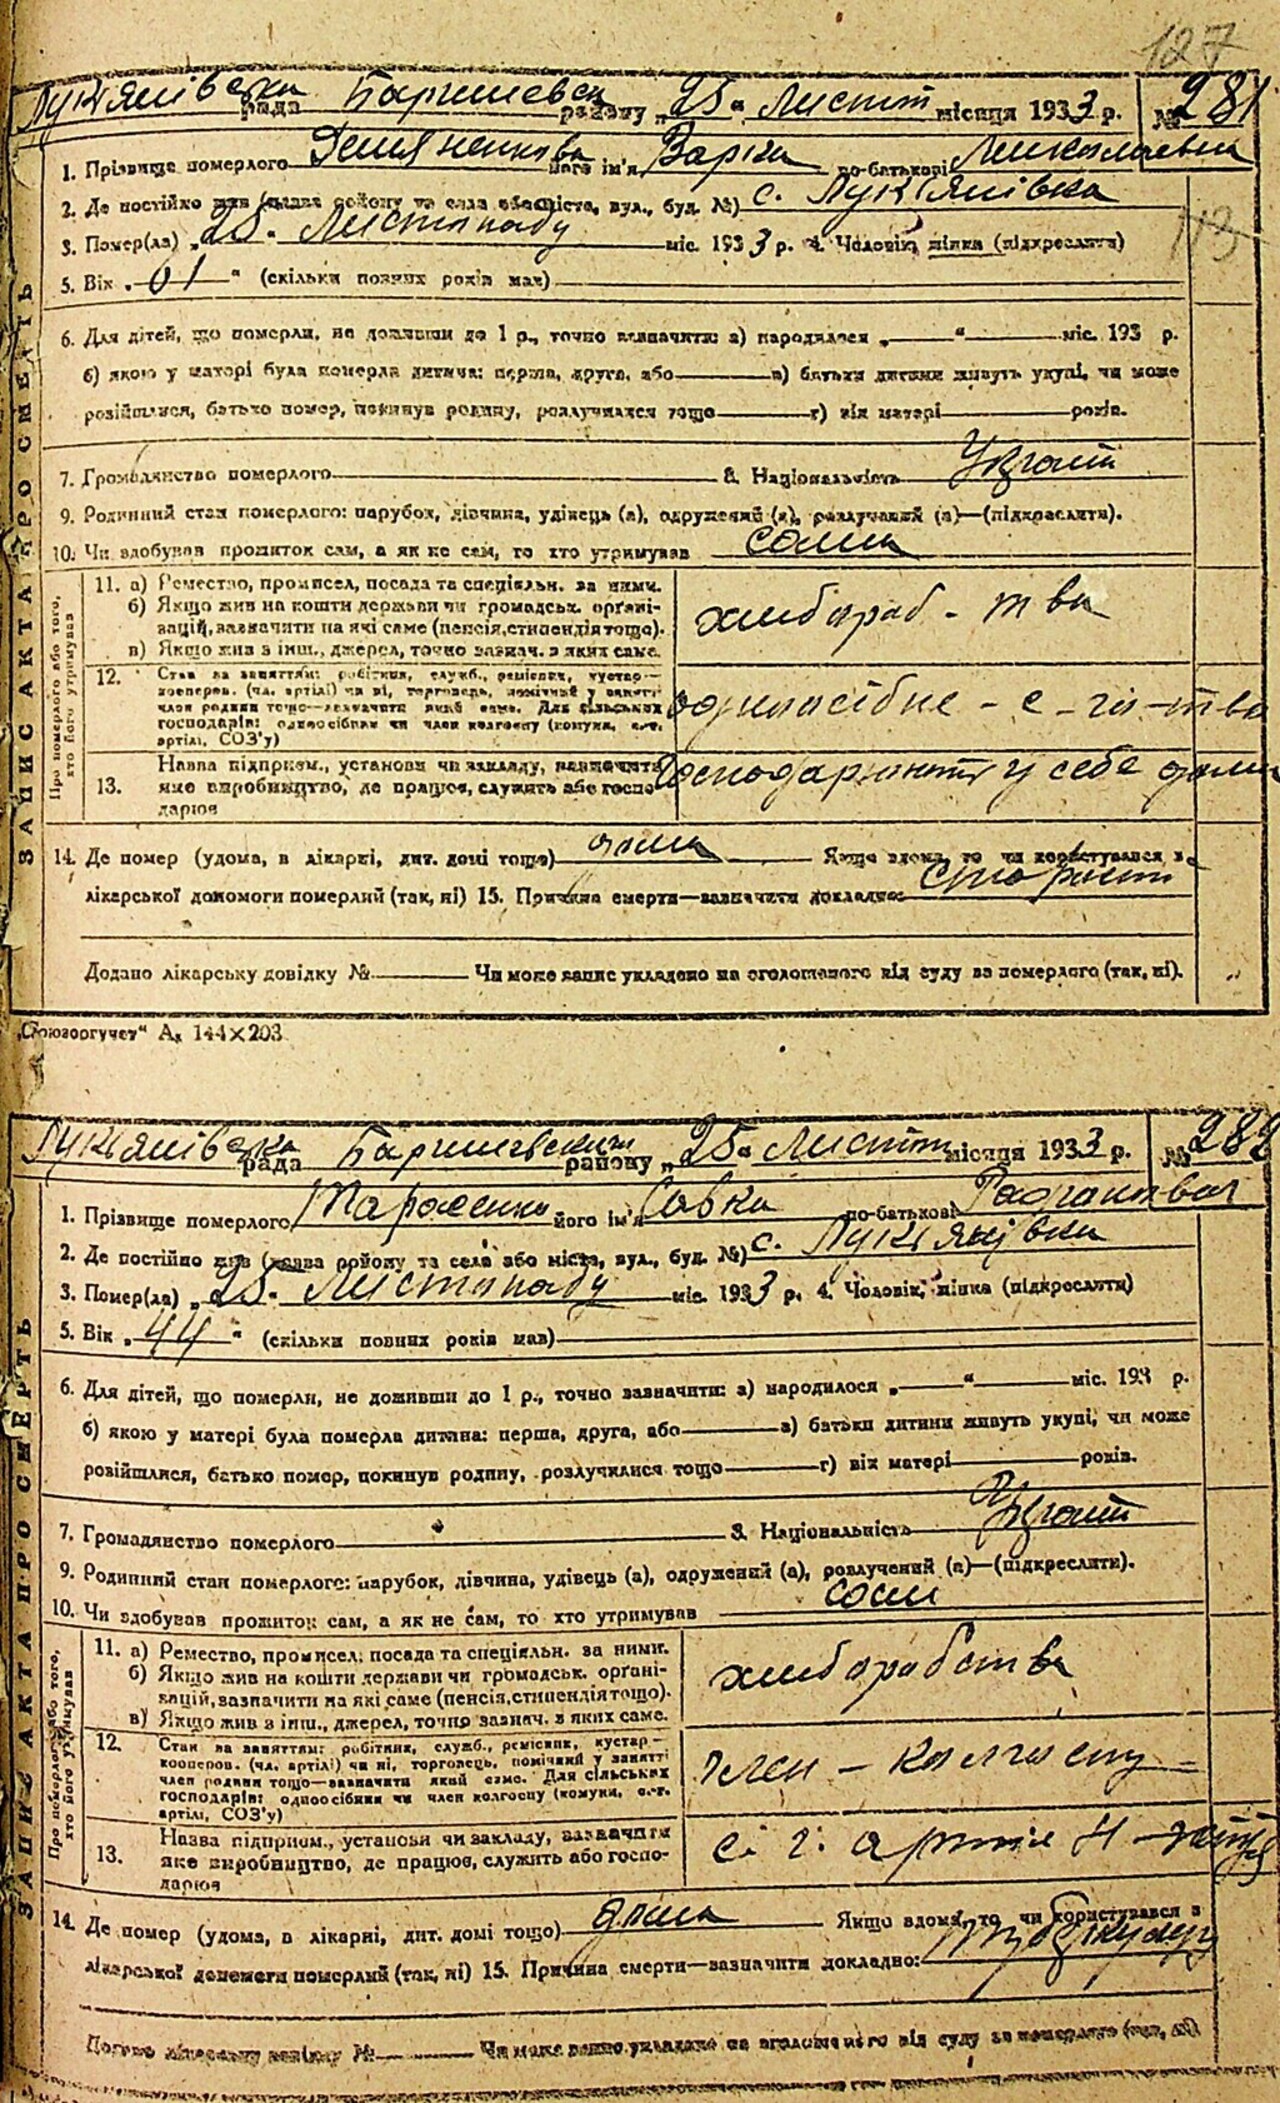 127
Лукянівска рада Баришевск району „25“ Листоп місяця 1933 р. № 281
1. Прізвище померлого Демяненкова його ім'я Варка по-батькові Миколаевна
2. Де постійно жив (назва району та села або міста, вул., буд. №) с. Лук'янівка
3. Помер(ла) „25“ Листопаду міс. 1933 р. 4. Чоловік, жінка (підкреслити)
113
5. Вік „61“ (скільки повних років мав)
6. Для дітей, що померли, не доживши до 1 р., точно зазначити: а) народилося „ “ міс. 193 р.
б) якою у матері була померла дитина: перша, друга, або в) батьки дитини живуть укупі, чи може
розійшлися, батько помер, покинув родину, розлучилися тощо г) вік матері років.
7. Громадянство померлого 8. Національність Україн
9. Родинний стан померлого: парубок, дівчина, удівець (а), одружений (а), розлучений (а)—(підкреслити).
10. Чи здобував прожиток сам, а як не сам, то хто утримував сама
ЗАПИС АКТА ПРО СМЕРТЬ
Про померлого або того, хто його утримував
11. а) Ремество, промисел, посада та спеціяльн. за ними.
б) Якщо жив на кошти держави чи громадськ. органі-
зацій, зазначити на які саме (пенсія, стипендія тощо).
в) Якщо жив з інш., джерел, точно зазнач. з яких саме.
хлібораб-тва
12. Стан за заняттям: робітник, служб., ремісник, кустар—
кооперов. (чл. артілі) чи ні, торговець, помічний у занятті
член родини тощо—зазначити який саме. Для сільських
господарів: одноосібник чи член колгоспу (комуни, с.-г.
артілі, СОЗ'у)
одноосібне - с - го-тва
13. Назва підприєм., установи чи закладу, зазначити
яке виробництво, де працює, служить або госпо-
дарює
Господарюють у себе дома
14. Де помер (удома, в лікарні, дит. домі тощо) дома Якщо вдома, то чи користувався з
лікарської допомоги померлий (так, ні) 15. Причина смерти—зазначити докладно: старости
Додано лікарську довідку № Чи може запис укладено на оголошеного від суду за померлого (так, ні).
„Союзоргучет“ А₅ 144×203
Лукянівска рада Баришевський району „25“ Листоп місяця 1933 р. № 282
1. Прізвище померлого Тарасенко його ім'я Савка по-батькові
2. Де постійно жив (назва району та села або міста, вул., буд. №) с. Лук'янівка
3. Помер(ла) „25“ Листопаду міс. 1933 р. 4. Чоловік, жінка (підкреслити)
5. Вік „44“ (скільки повних років мав)
6. Для дітей, що померли, не доживши до 1 р., точно зазначити: а) народилося „ “ міс. 193 р.
б) якою у матері була померла дитина: перша, друга, або в) батьки дитини живуть укупі, чи може
розійшлися, батько помер, покинув родину, розлучилися тощо г) вік матері років.
7. Громадянство померлого 8. Національність Україн
9. Родинний стан померлого: парубок, дівчина, удівець (а), одружений (а), розлучений (а)—(підкреслити).
10. Чи здобував прожиток сам, а як не сам, то хто утримував сам
ЗАПИС АКТА ПРО СМЕРТЬ
Про померлого або того, хто його утримував
11. а) Ремество, промисел, посада та спеціяльн. за ними.
б) Якщо жив на кошти держави чи громадськ. органі-
зацій, зазначити на які саме (пенсія, стипендія тощо).
в) Якщо жив з інш., джерел, точно зазнач. з яких саме.
хліборабства
12. Стан за заняттям: робітник, служб., ремісник, кустар—
кооперов. (чл. артілі) чи ні, торговець, помічний у занятті
член родини тощо—зазначити який саме. Для сільських
господарів: одноосібник чи член колгоспу (комуни, с.-г.
артілі, СОЗ'у)
член - колгоспу
13. Назва підприєм., установи чи закладу, зазначити
яке виробництво, де працює, служить або госпо-
дарює
с. г. артіл
14. Де помер (удома, в лікарні, дит. домі тощо) дома Якщо вдома, то чи користувався з
лікарської допомоги померлий (так, ні) 15. Причина смерти—зазначити докладно: туберкульоз
Додано лікарську довідку № Чи може запис укладено на оголошеного від суду за померлого (так, ні).